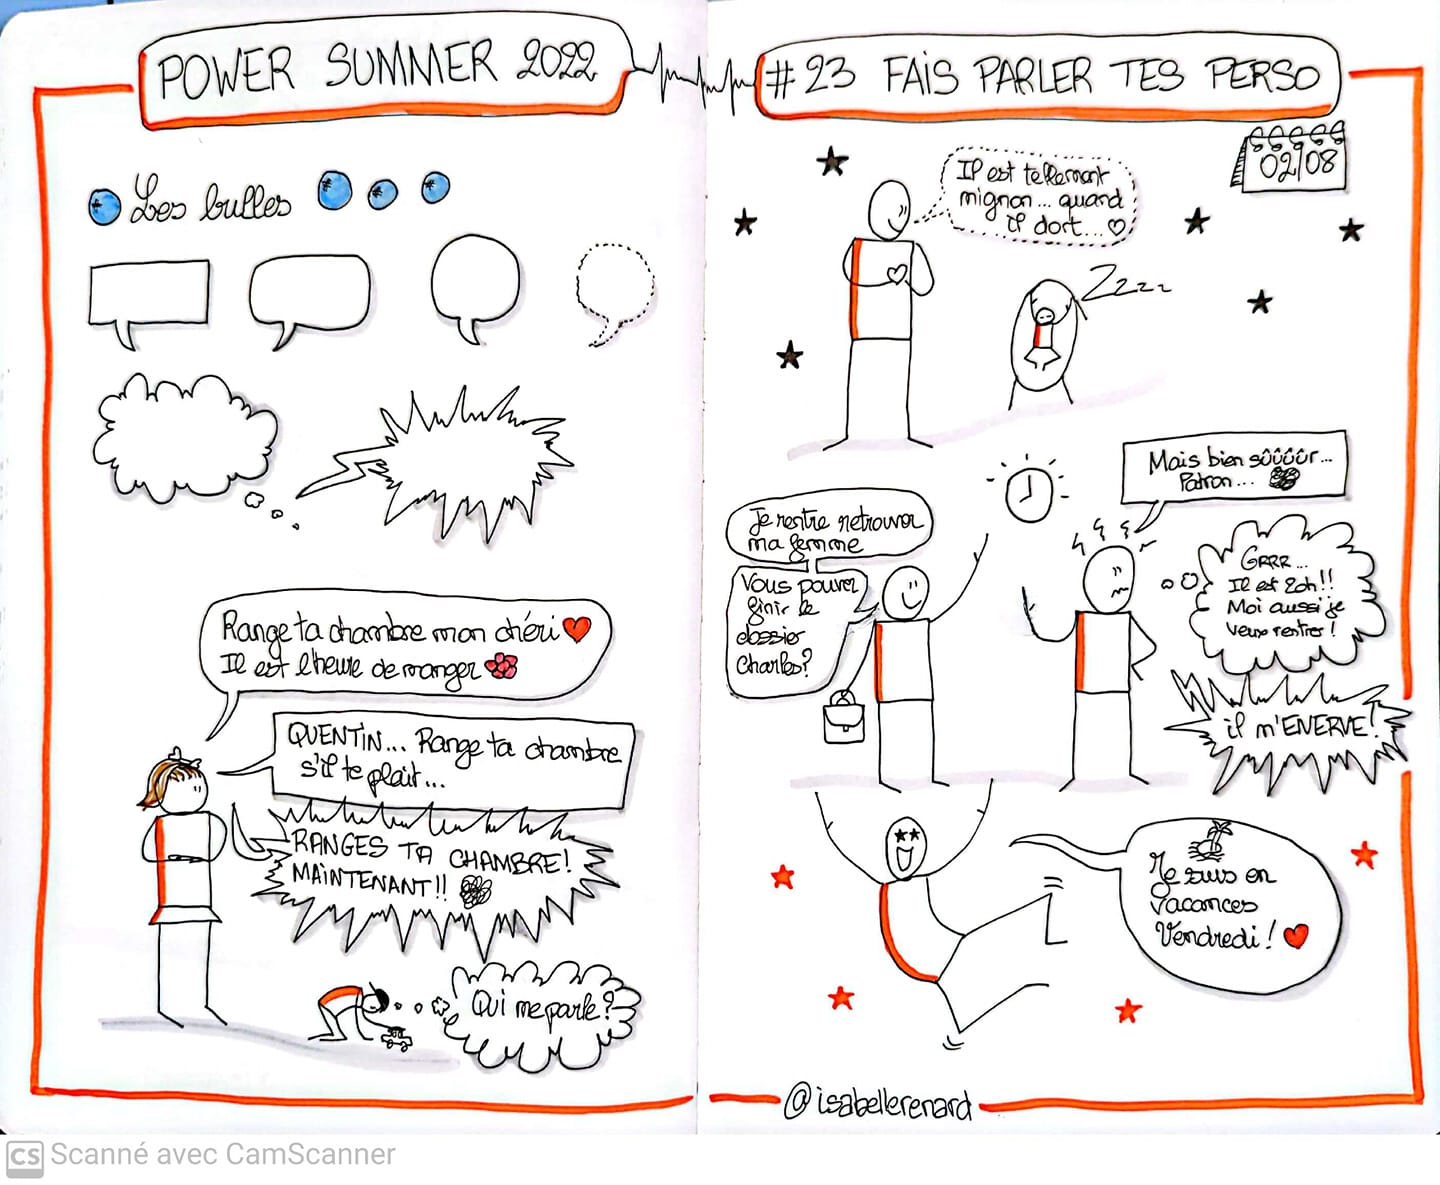 POWER SUMMER 2022
Les bulles
Range ta chambre mon chéri
Il est l'heure de manger
QUENTIN... Range ta chambre
s'il te plait...
RANGES TA CHAMBRE!
MAINTENANT!!
Qui me parle?
# 23 FAIS PARLER TES PERSO
02/08
Il est tellement
mignon... quand
il dort...
Zzzz
Mais bien sûûûûr...
Patron...
Je rentre retrouver
ma femme
Vous pouvez
finir le
dossier
Charles?
GRRR...
Il est 20h!!
Moi aussi je
veux rentrer!
il m'ENERVE!
Je suis en
vacances
Vendredi!
@isabellerenard
CS Scanné avec CamScanner